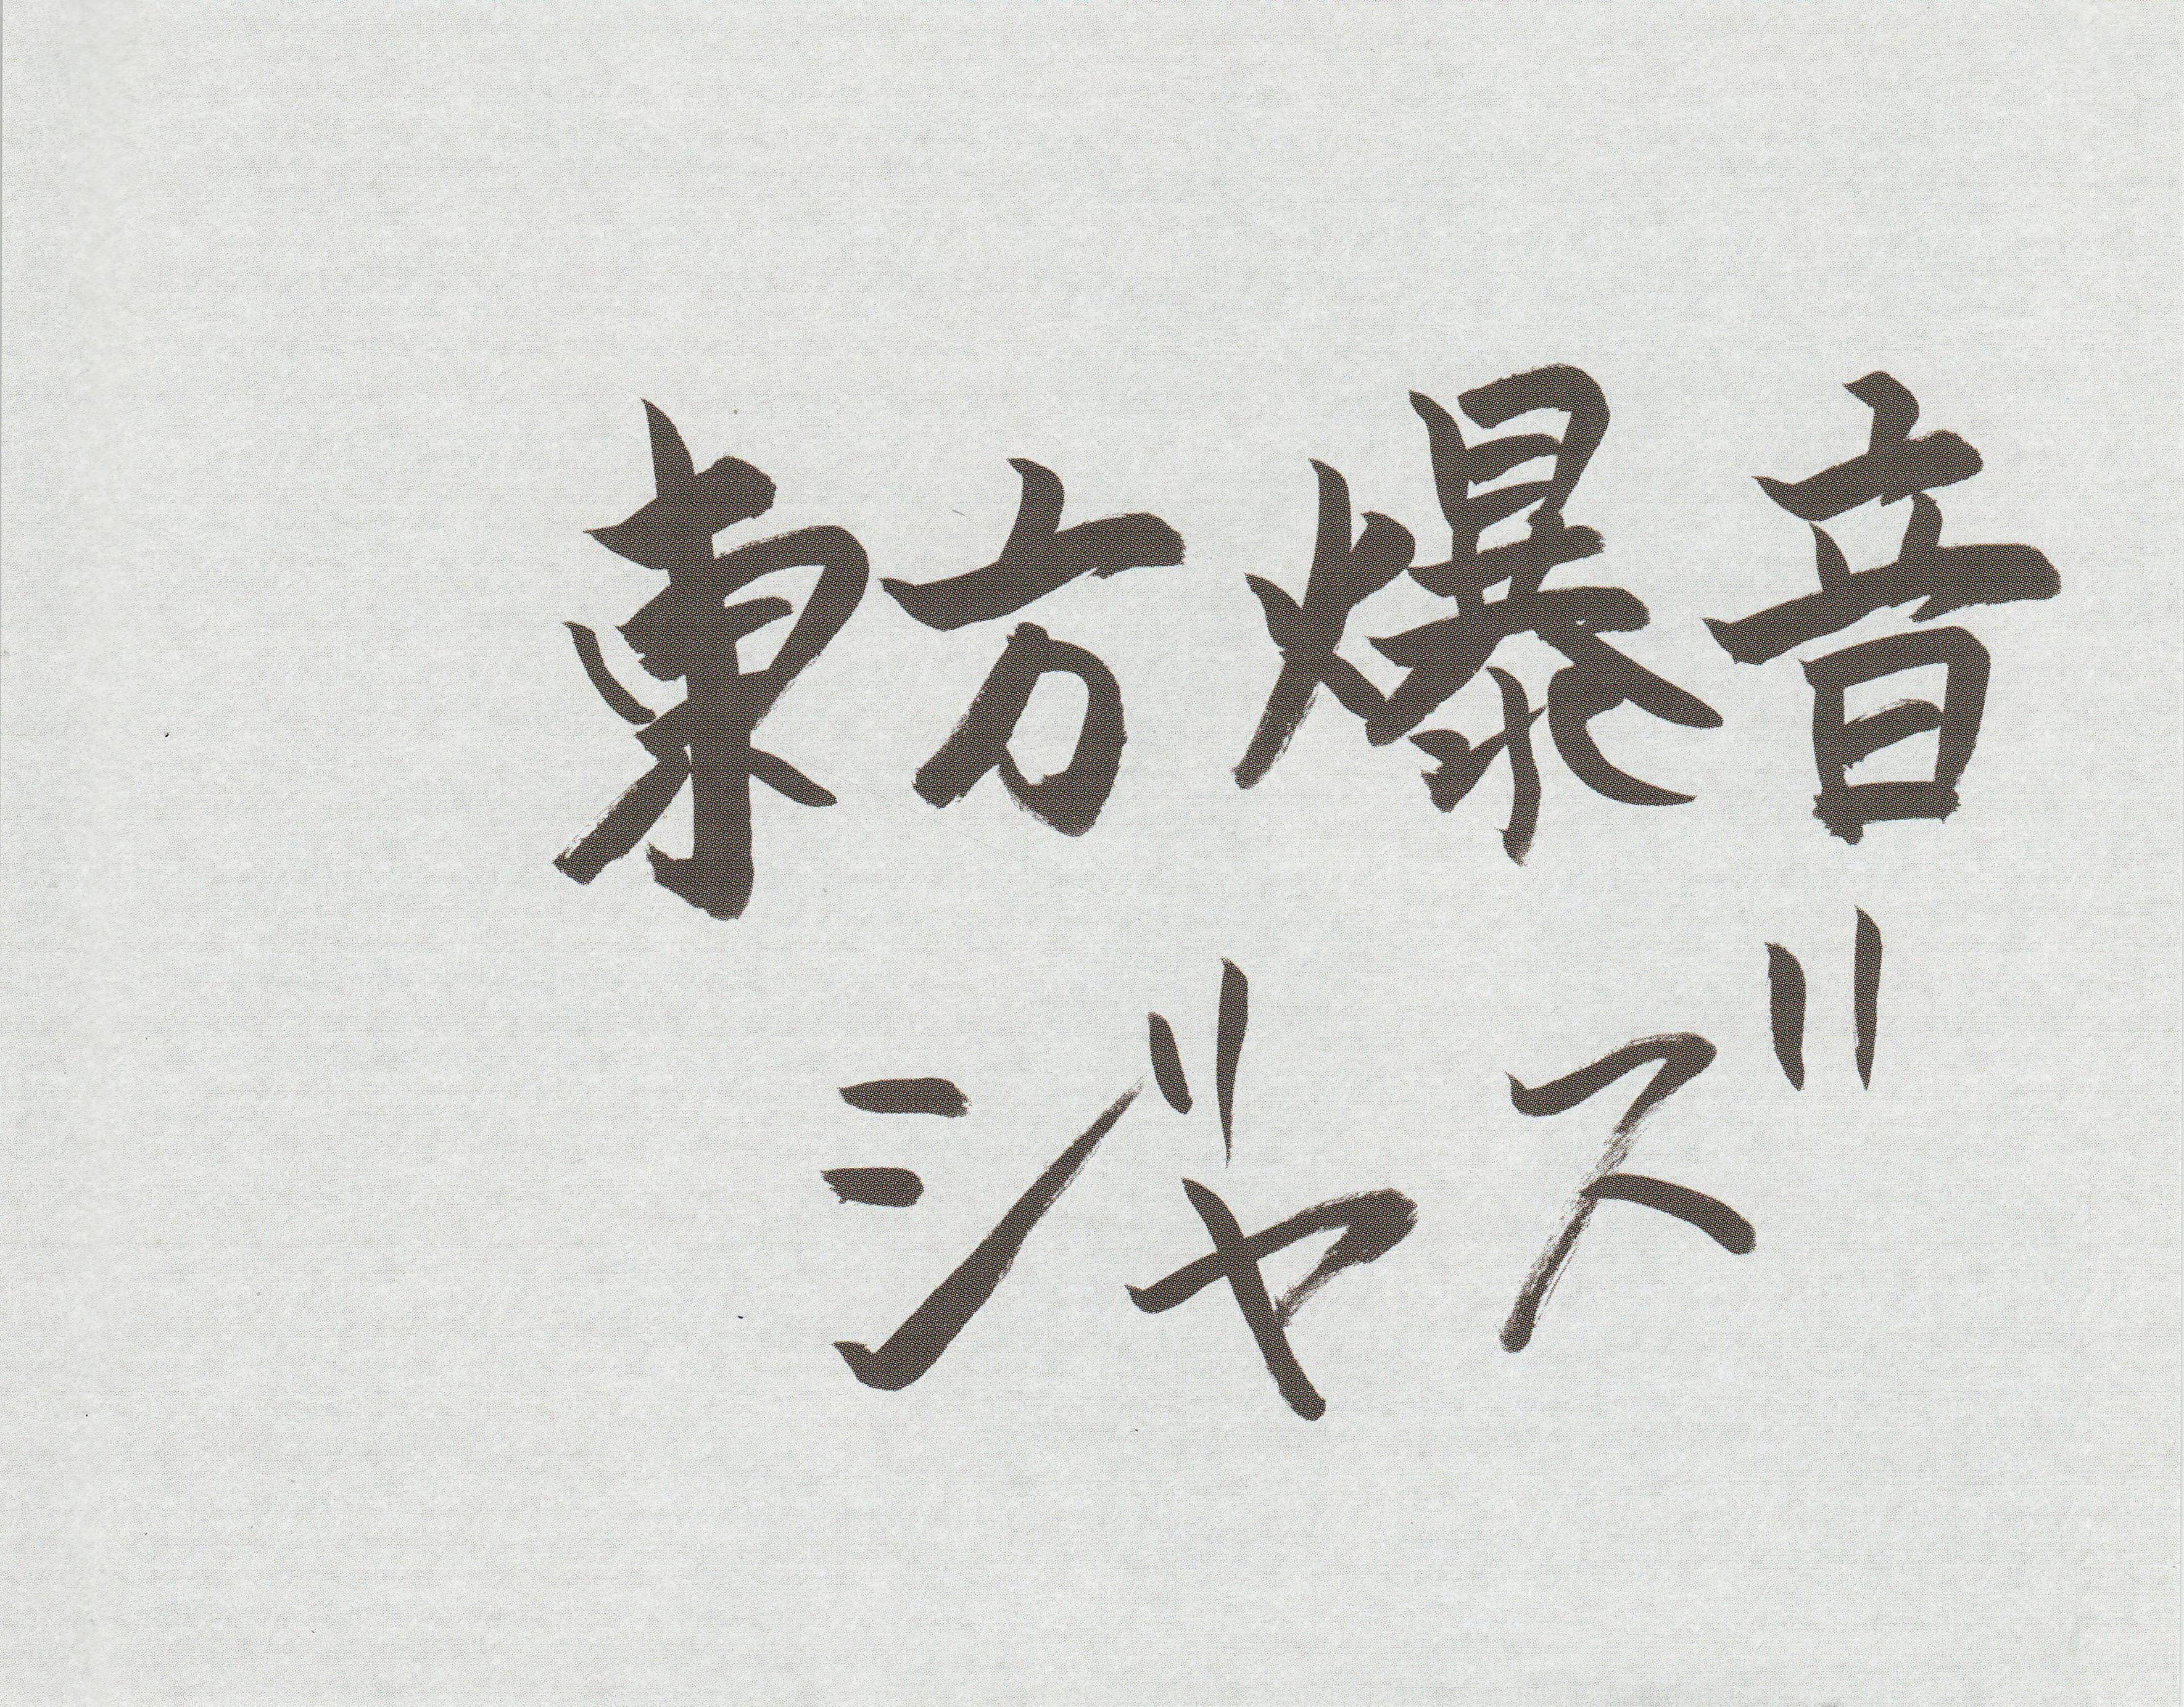 東方爆音
ジャズ